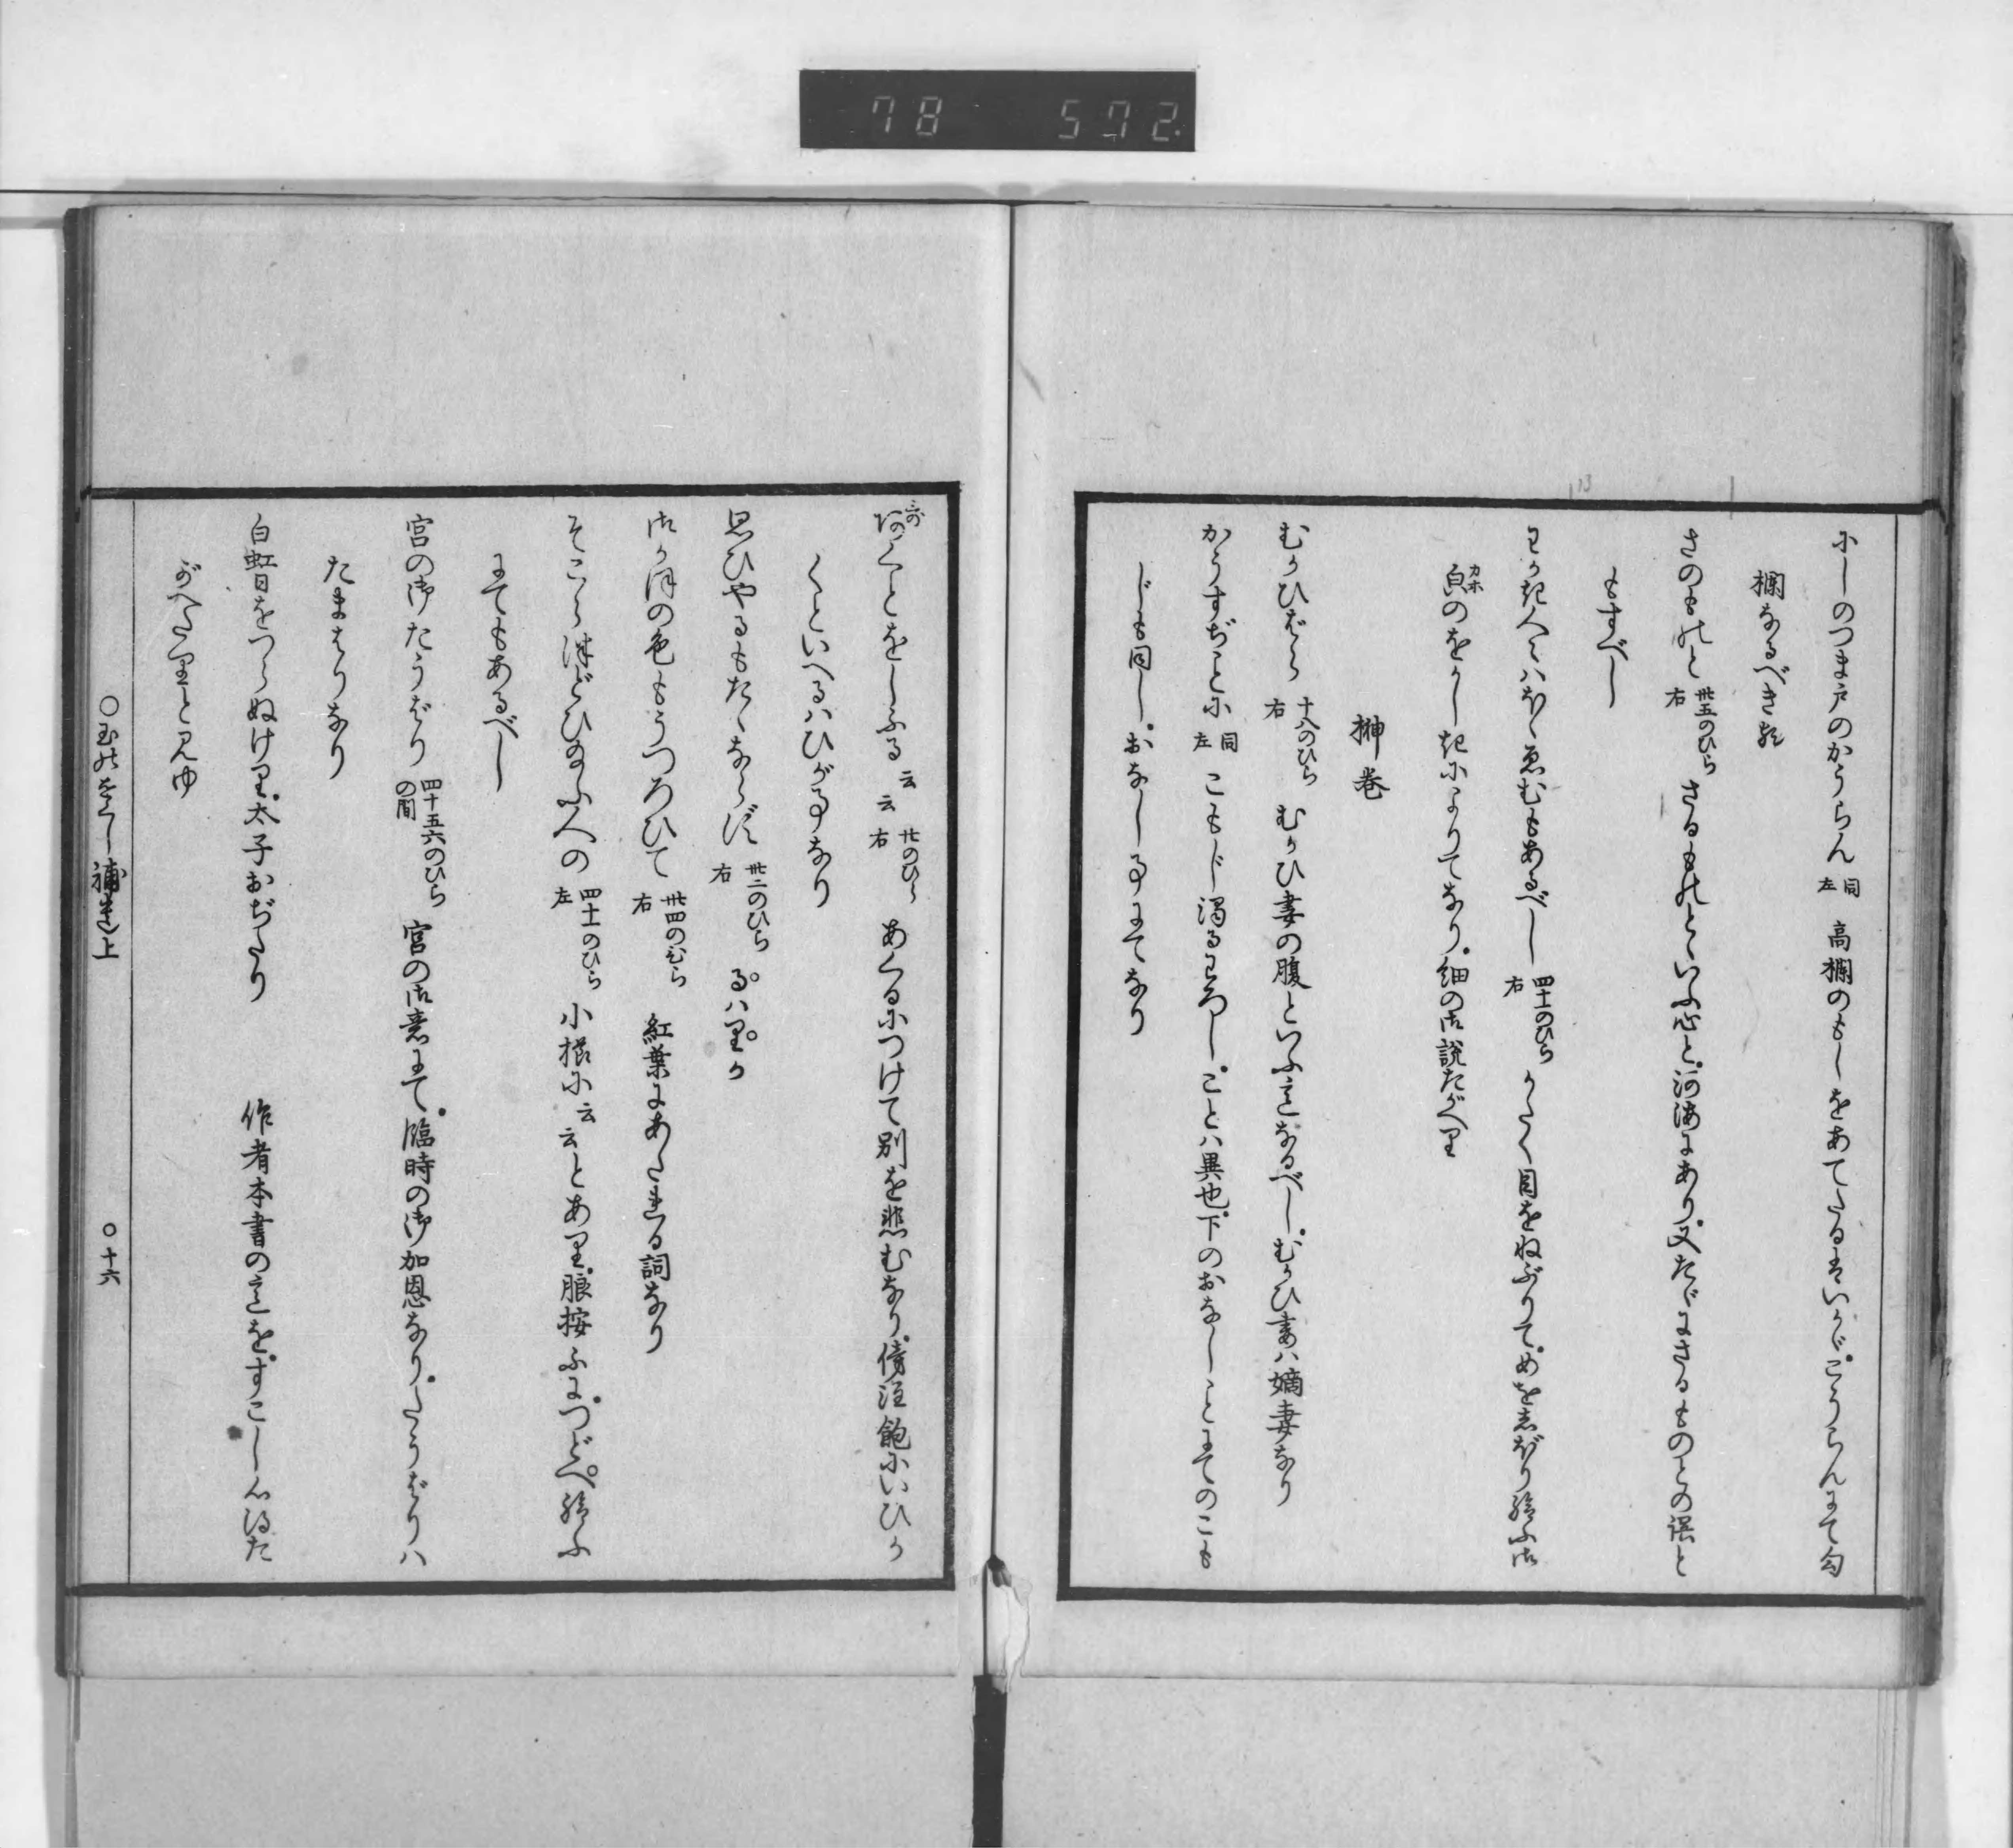 78 572.
にしのつま戸のかうらん 同左 高欄のもしをあてたるはいかゞ。こうらんにて勾
欄なるべき歟
さのものと 卅五のひら右 さるものとといふ心と。河海にあり。又たゞにさるものとの誤と
もすべし
わかき人々はほゝゑむもあるべし 四十一のひら右 かたく目をねぶりて。めをしぼり給ふ御
皃カホのをかしきによりてなり。細の御説たがへり
榊巻
むかひばら 十八のひら右 むかひ妻の腹といふ意なるべし。むかひ妻は嫡妻なり
かうすぢことに 同左 こもじ濁るわろし。ことは異也。下のおなしことにてのこも
じも同し。おなし事にてなり
あくとをしふる云云 廿のひら右 あくるにつけて別を悲むなり。傍注飽にいひか
くといへるはひが事なり
思ひやるもたゝならず 卅二のひら右 るはりか
御かほの色もうつろひて 卅四のひら右 紅葉にあたれる詞なり
そこらつどひ給ふ人の 四十一のひら左 小櫛に云云とあり。眼按ふに。つどへ給ふ
にてもあるべし
宮の御たうばり 四十五六のひらの間 宮の御意にて。臨時の御加恩なり。たうばりは
たまはりなり
白虹日をつらぬけり。太子おぢたり 作者本書の意を。すこし心得た
がへたりと見ゆ
○玉のをくし補遺上 ○十六